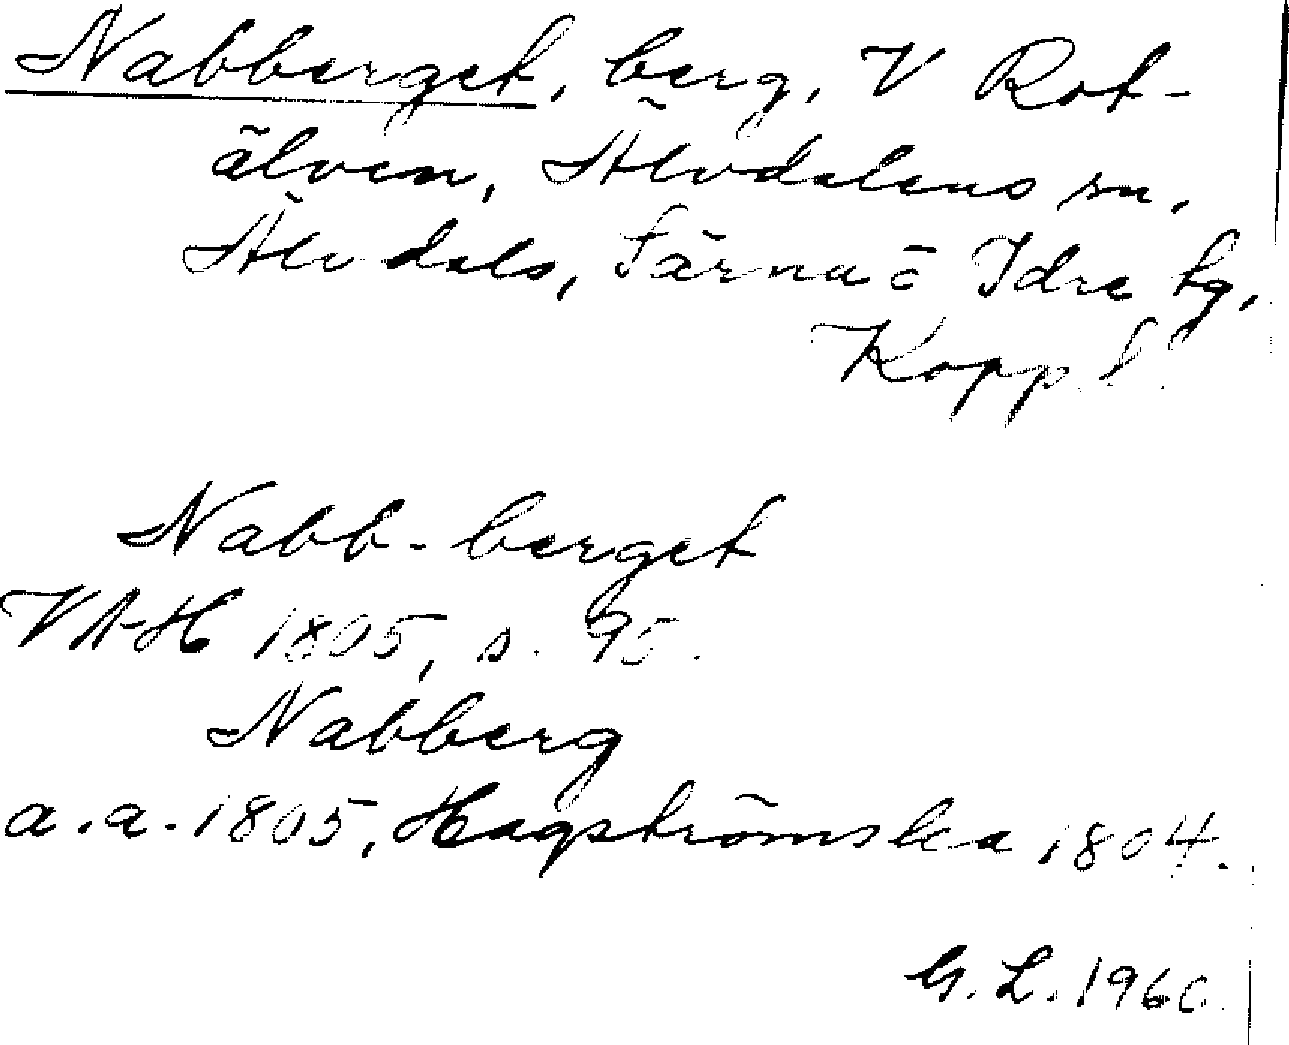 Nabberget, berg, V Rot-
älven, Älvdalens sn,
Älvdals, Särna o Idre tg,
Kopp. l.
Nabb-berget
VAH 1805, s. 95.
Nabberg
a.a. 1805, Hagströmska 1804.
G. L. 1960